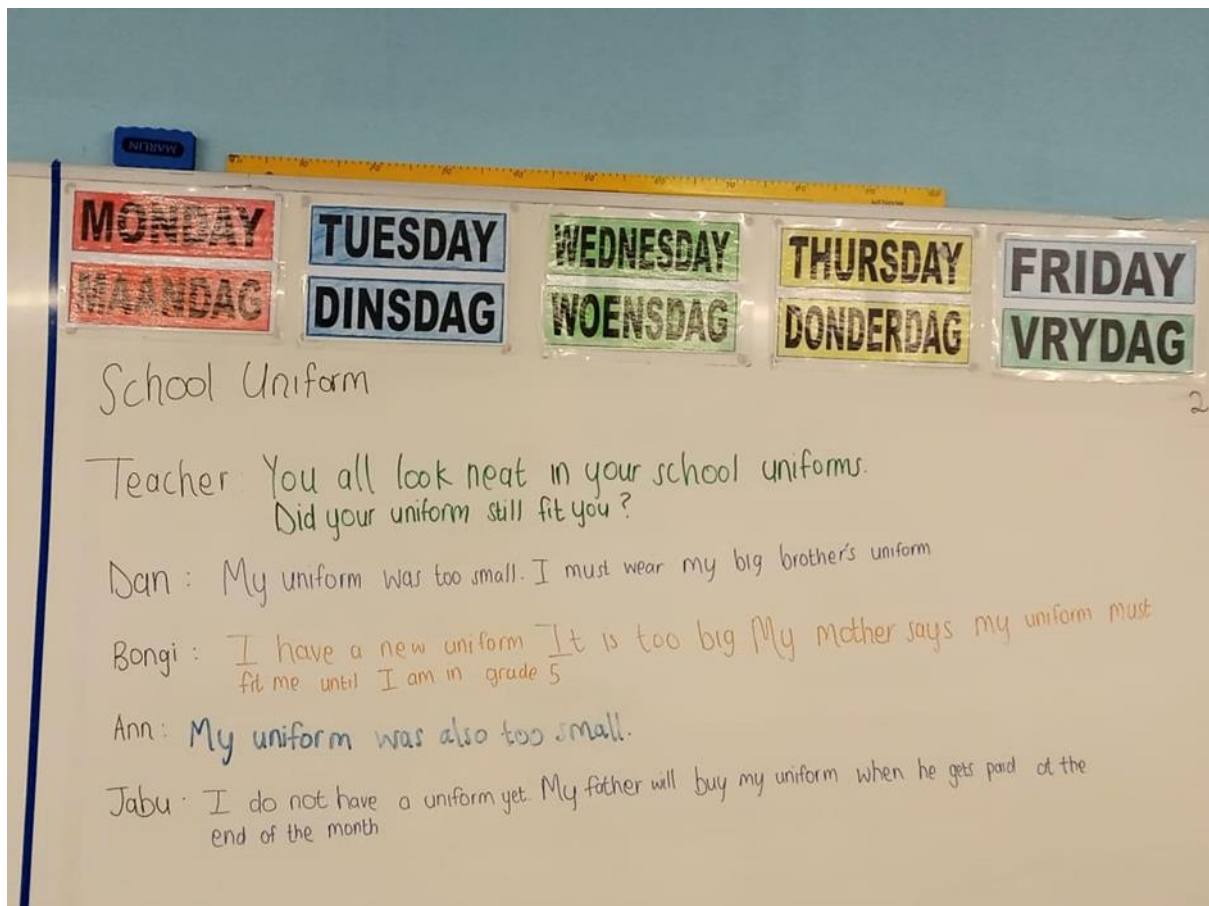 MARLIN
MONDAY TUESDAY WEDNESDAY THURSDAY FRIDAY
MAANDAG DINSDAG WOENSDAG DONDERDAG VRYDAG
School Uniform
2
Teacher: You all look neat in your school uniforms.
Did your uniform still fit you?
Dan: My uniform was too small. I must wear my big brother's uniform
Bongi: I have a new uniform It is too big My mother says my uniform must
fit me until I am in grade 5
Ann: My uniform was also too small.
Jabu: I do not have a uniform yet. My father will buy my uniform when he gets paid at the
end of the month